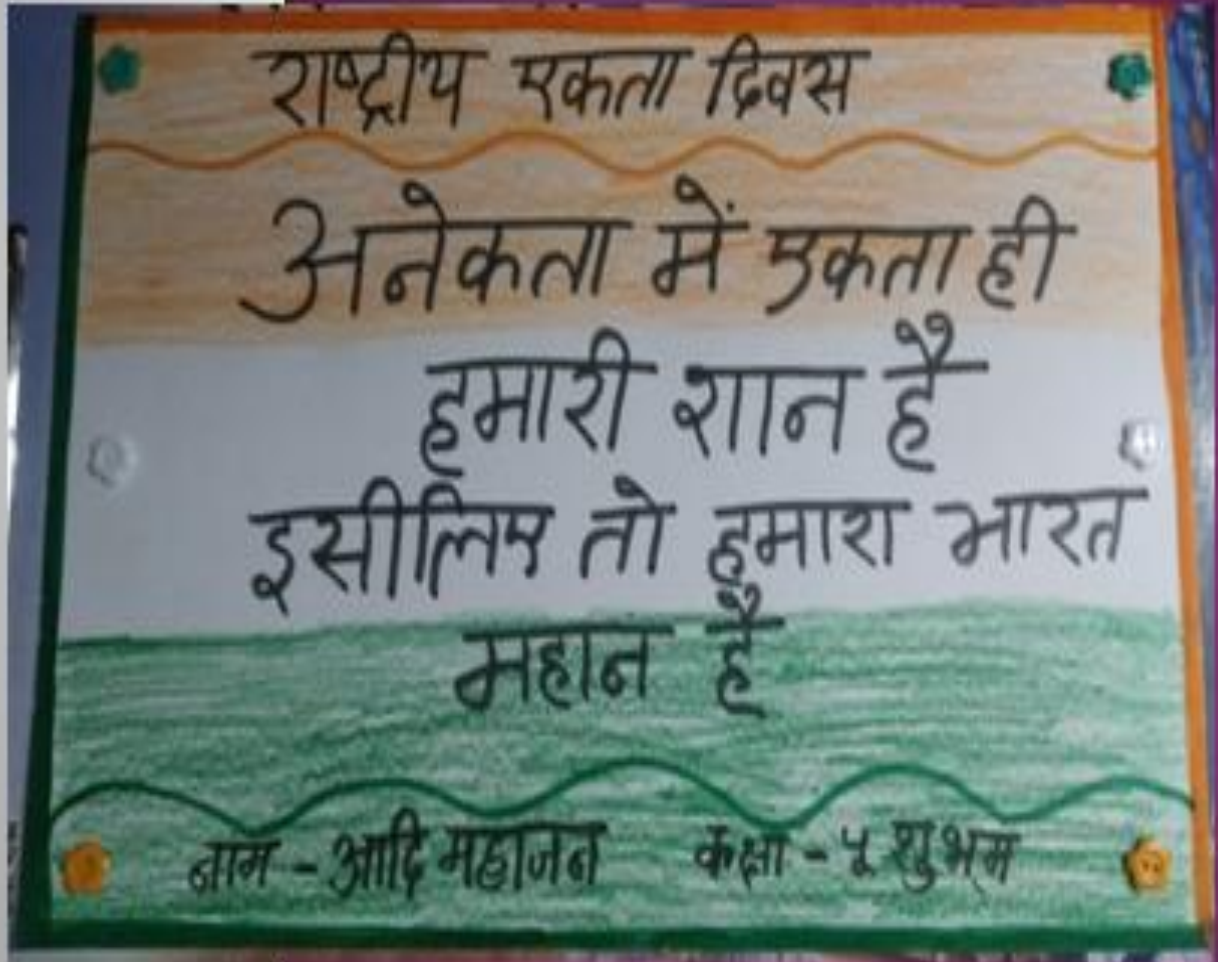 राष्ट्रीय एकता दिवस
अनेकता में एकता ही
हमारी शान है
इसीलिए तो हमारा भारत
महान है
नाम - आदि महाजन कक्षा - ५ शुभम